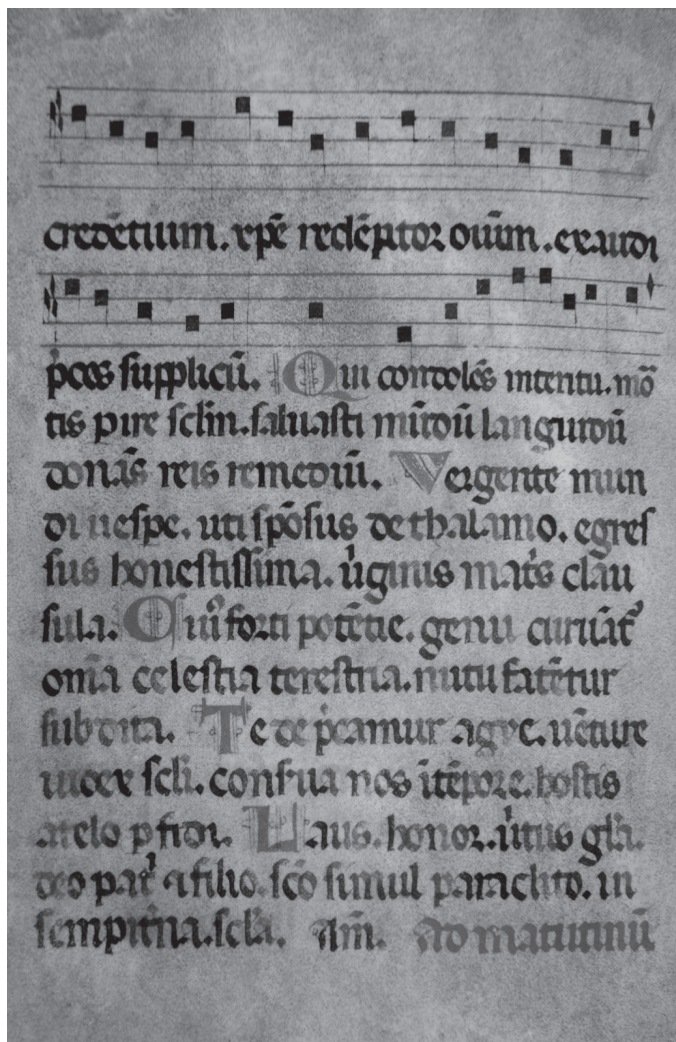 credētium. xpē redēptor oūim. exaudi
p̄ces supplicū. Qui condolēs interitu. mō
tis pire sclm. saluasti mūdū languidū
donās reis remediū. Vergente mun
di uespe. uti spōsus de thalamo. egres
sus honestissima. uͥginis matͥs clau
sula. Cuiͥ forti potētie. genu curuātͬ
om̄ia celestia terestria. nutu fatētur
subdita. Te dep̄camur agye. uēture
iudex scli. conſua nos ītēpore. hostis
a telo pfidi. Laus. honor. uͥtus gl̄a.
deo patͥ ⁊ filio. sc̄o simul paraclito. in
sempitͥna. scl̄a. Am̄. Ad matutinū